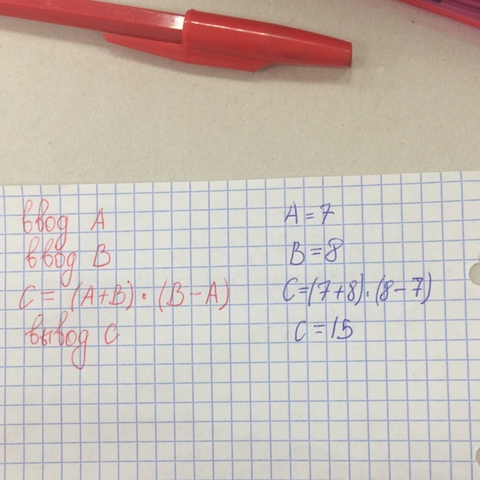 ввод A
ввод B
C = (A+B) · (B-A)
вывод C
A=7
B=8
C=(7+8)·(8-7)
C=15